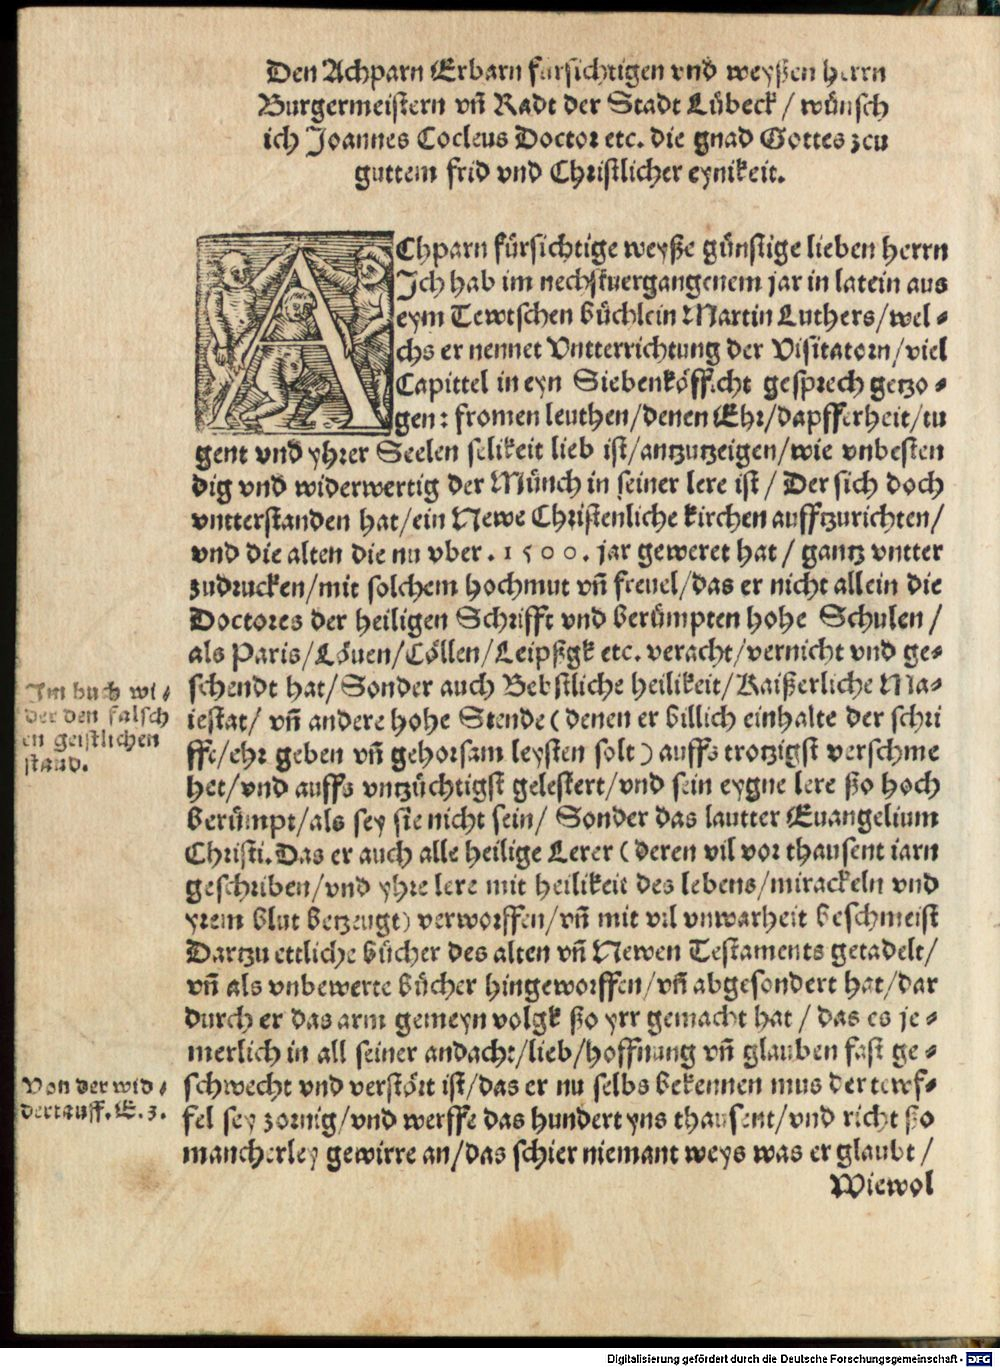 Den Achparn Erbarn fursichtigen vnd weyßen herrn
Burgermeistern vñ Radt der Stadt Lübeck / wünsch
ich Joannes Cocleus Doctor etc. die gnad Gottes zcu
guttem frid vnd Christlicher eynikeit.
AChparn fürsichtige weyße günstige lieben herrn
Ich hab im nechstuergangenem jar in latein aus
eym Tewtschen büchlein Martin Luthers/wel⸗
chs er nennet Vntterrichtung der Visitatorn/viel
Capittel in eyn Siebenköfficht gesprech getzo⸗
gen: fromen leuthen/denen Ehr/dapfferheit/tu
gent vnd yhrer Seelen selikeit lieb ist/antzutzeigen/wie vnbesten
dig vnd widerwertig der Münch in seiner lere ist / Der sich doch
vntterstanden hat/ein Newe Christenliche kirchen aufftzurichten/
vnd die alten die nu vber . 1500. jar geweret hat / gantz vntter
zudrucken/mit solchem hochmut vñ freuel/das er nicht allein die
Doctores der heiligen Schrifft vnd berümpten hohe Schulen /
als Paris/Löuen/Cöllen/Leipßgk etc. veracht/vernicht vnd ge⸗
schendt hat/Sonder auch Bebstliche heilikeit/Kaißerliche Ma⸗
iestat/ vñ andere hohe Stende (denen er billich einhalte der schri
fft/ehr geben vñ gehorsam leysten solt) auffs trotzigst verschme
het/vnd auffs vntzüchtigst gelestert/vnd sein eygne lere ßo hoch
berümpt/als sey sie nicht sein/ Sonder das lautter Euangelium
Christi. Das er auch alle heilige Lerer (deren vil vor thausent iarn
geschriben/vnd yhre lere mit heilikeit des lebens/mirackeln vnd
yrem blut betzeugt) verworffen/vñ mit vil vnwarheit beschmeist
Dartzu ettliche bücher des alten vñ Newen Testaments getadelt/
vñ als vnbewerte bücher hingeworffen/vñ abgesondert hat/dar
durch er das arm gemeyn volgk ßo yrr gemacht hat / das es je⸗
merlich in all seiner andacht/lieb/hoffnung vñ glauben fast ge⸗
schwecht vnd verstört ist/das er nu selbs bekennen mus der tewf⸗
fel sey zornig/vnd werffe das hundert yns thausent/vnd richt ßo
mancherley gewirre an/das schier niemant weys was er glaubt /
Wiewol
Im buch wi⸗
der den falsch
en geistlichen
stand.
Von der wid⸗
dertauff. E. 3.
Digitalisierung gefördert durch die Deutsche Forschungsgemeinschaft - DFG